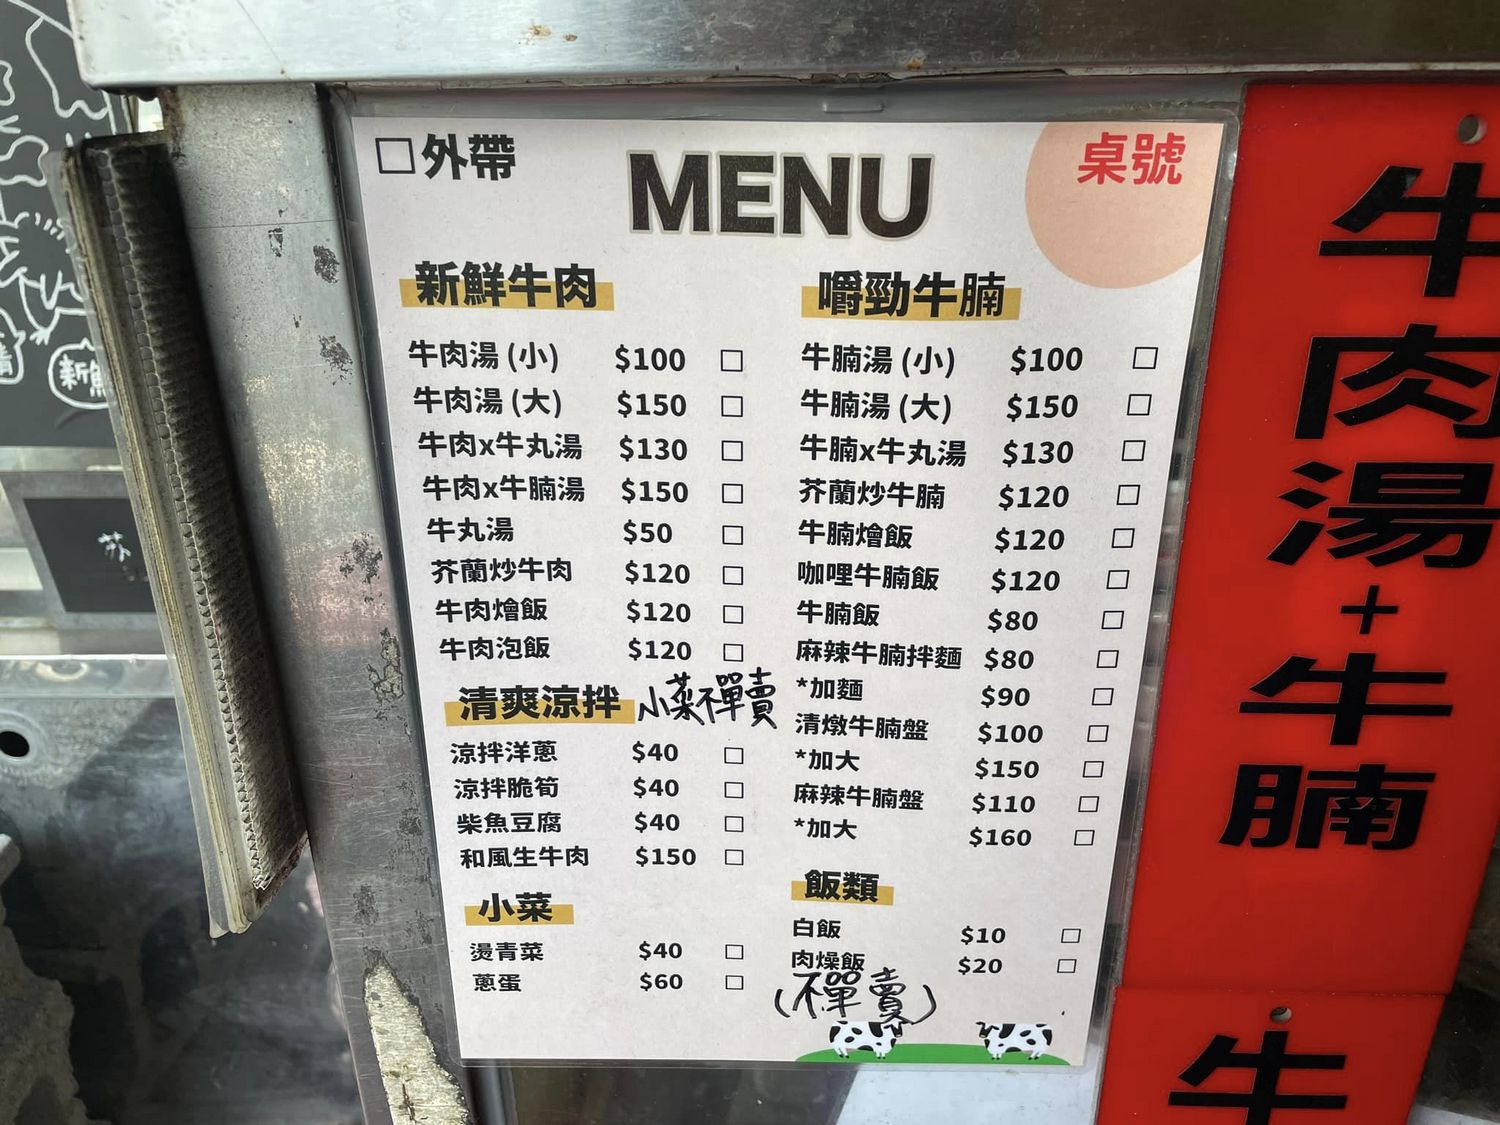 □外帶
MENU
桌號
新鮮牛肉
牛肉湯 (小) $100 □
牛肉湯 (大) $150 □
牛肉x牛丸湯 $130 □
牛肉x牛腩湯 $150 □
牛丸湯 $50 □
芥蘭炒牛肉 $120 □
牛肉燴飯 $120 □
牛肉泡飯 $120 □
清爽涼拌 小菜不單賣
涼拌洋蔥 $40 □
涼拌脆筍 $40 □
柴魚豆腐 $40 □
和風生牛肉 $150 □
小菜
燙青菜 $40 □
蔥蛋 $60 □
嚼勁牛腩
牛腩湯 (小) $100 □
牛腩湯 (大) $150 □
牛腩x牛丸湯 $130 □
芥蘭炒牛腩 $120 □
牛腩燴飯 $120 □
咖哩牛腩飯 $120 □
牛腩飯 $80 □
麻辣牛腩拌麵 $80 □
*加麵 $90 □
清燉牛腩盤 $100 □
*加大 $150 □
麻辣牛腩盤 $110 □
*加大 $160 □
飯類
白飯 $10 □
肉燥飯 $20 □
(不單賣)
牛肉湯+牛腩
牛
新鮮